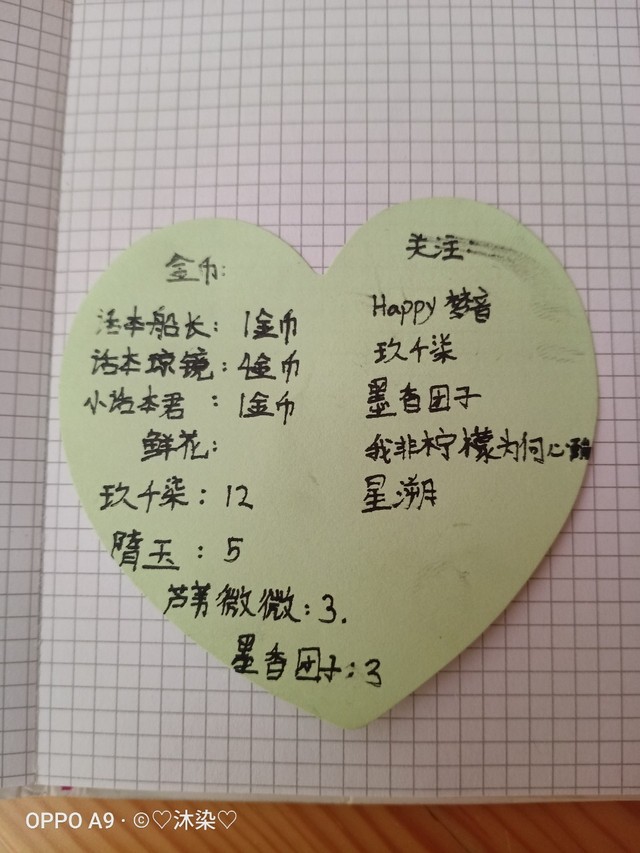 金币:
话本船长: 1金币
话本琼镜: 4金币
小话本君 : 1金币
鲜花:
玖千柒: 12
隋玉 : 5
芦荟微微: 3.
墨香团子: 3
关注:
Happy梦音
玖千柒
墨香团子
我非柠檬为何心酸
星溯
OPPO A9 · ©♡沐染♡